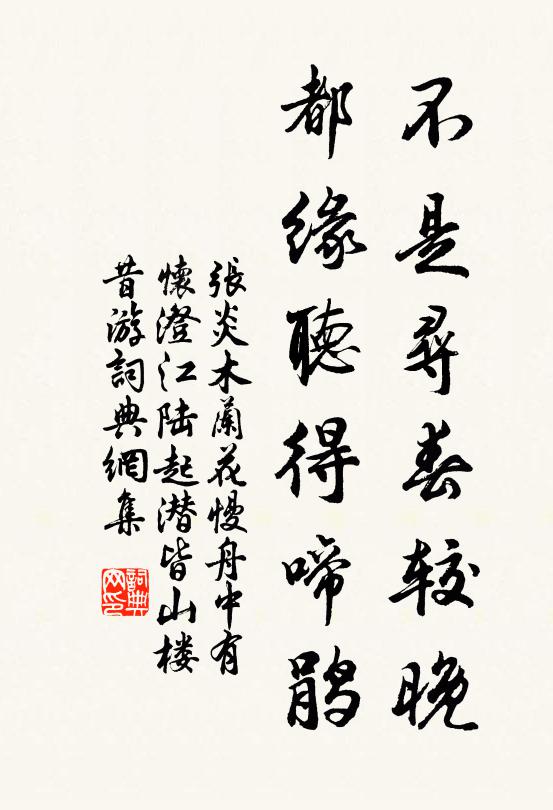 不是尋春较晚
都缘聽得啼鹃
張炎木蘭花慢舟中有
懷澄江陆起潜皆山楼
昔游詞典網集
詞典网印